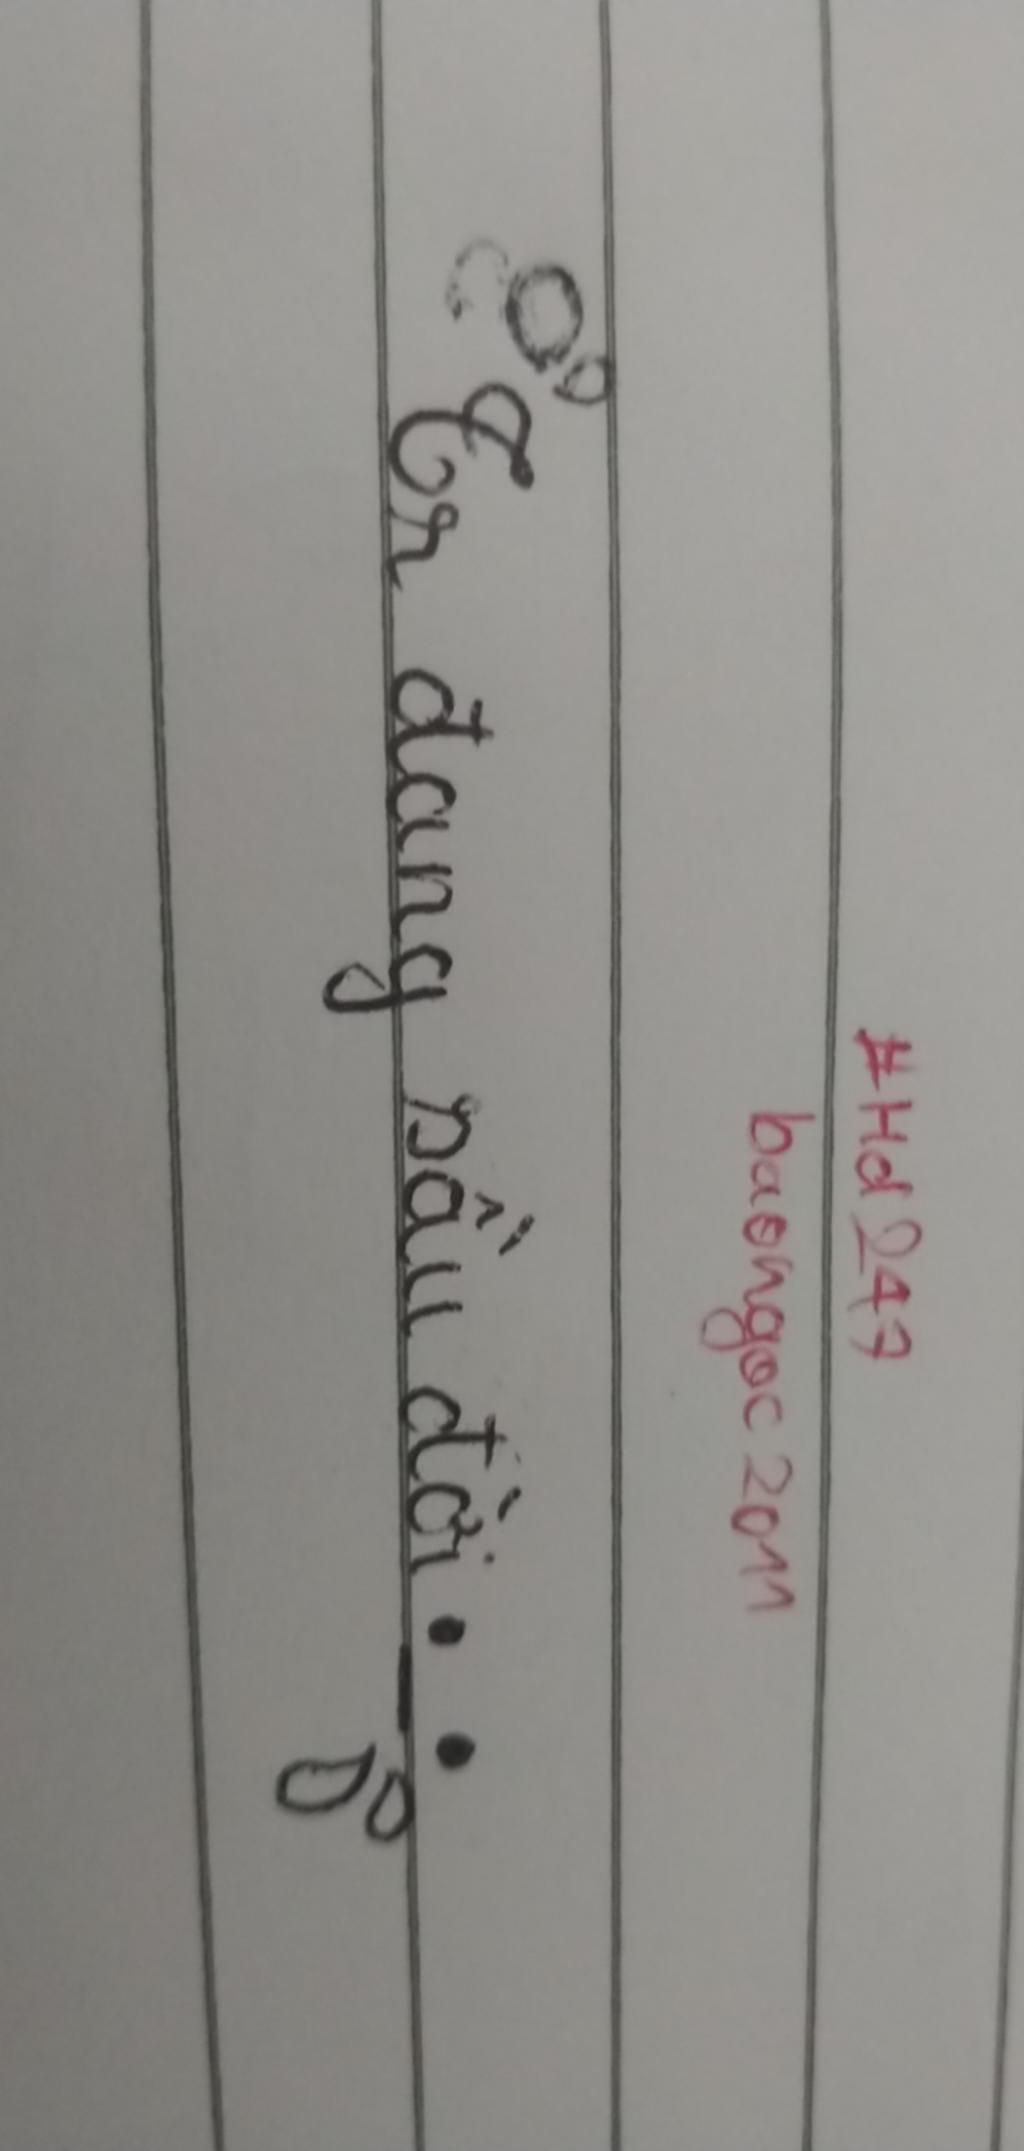 #Hd247
baongoc2011
Er đang sầu đời